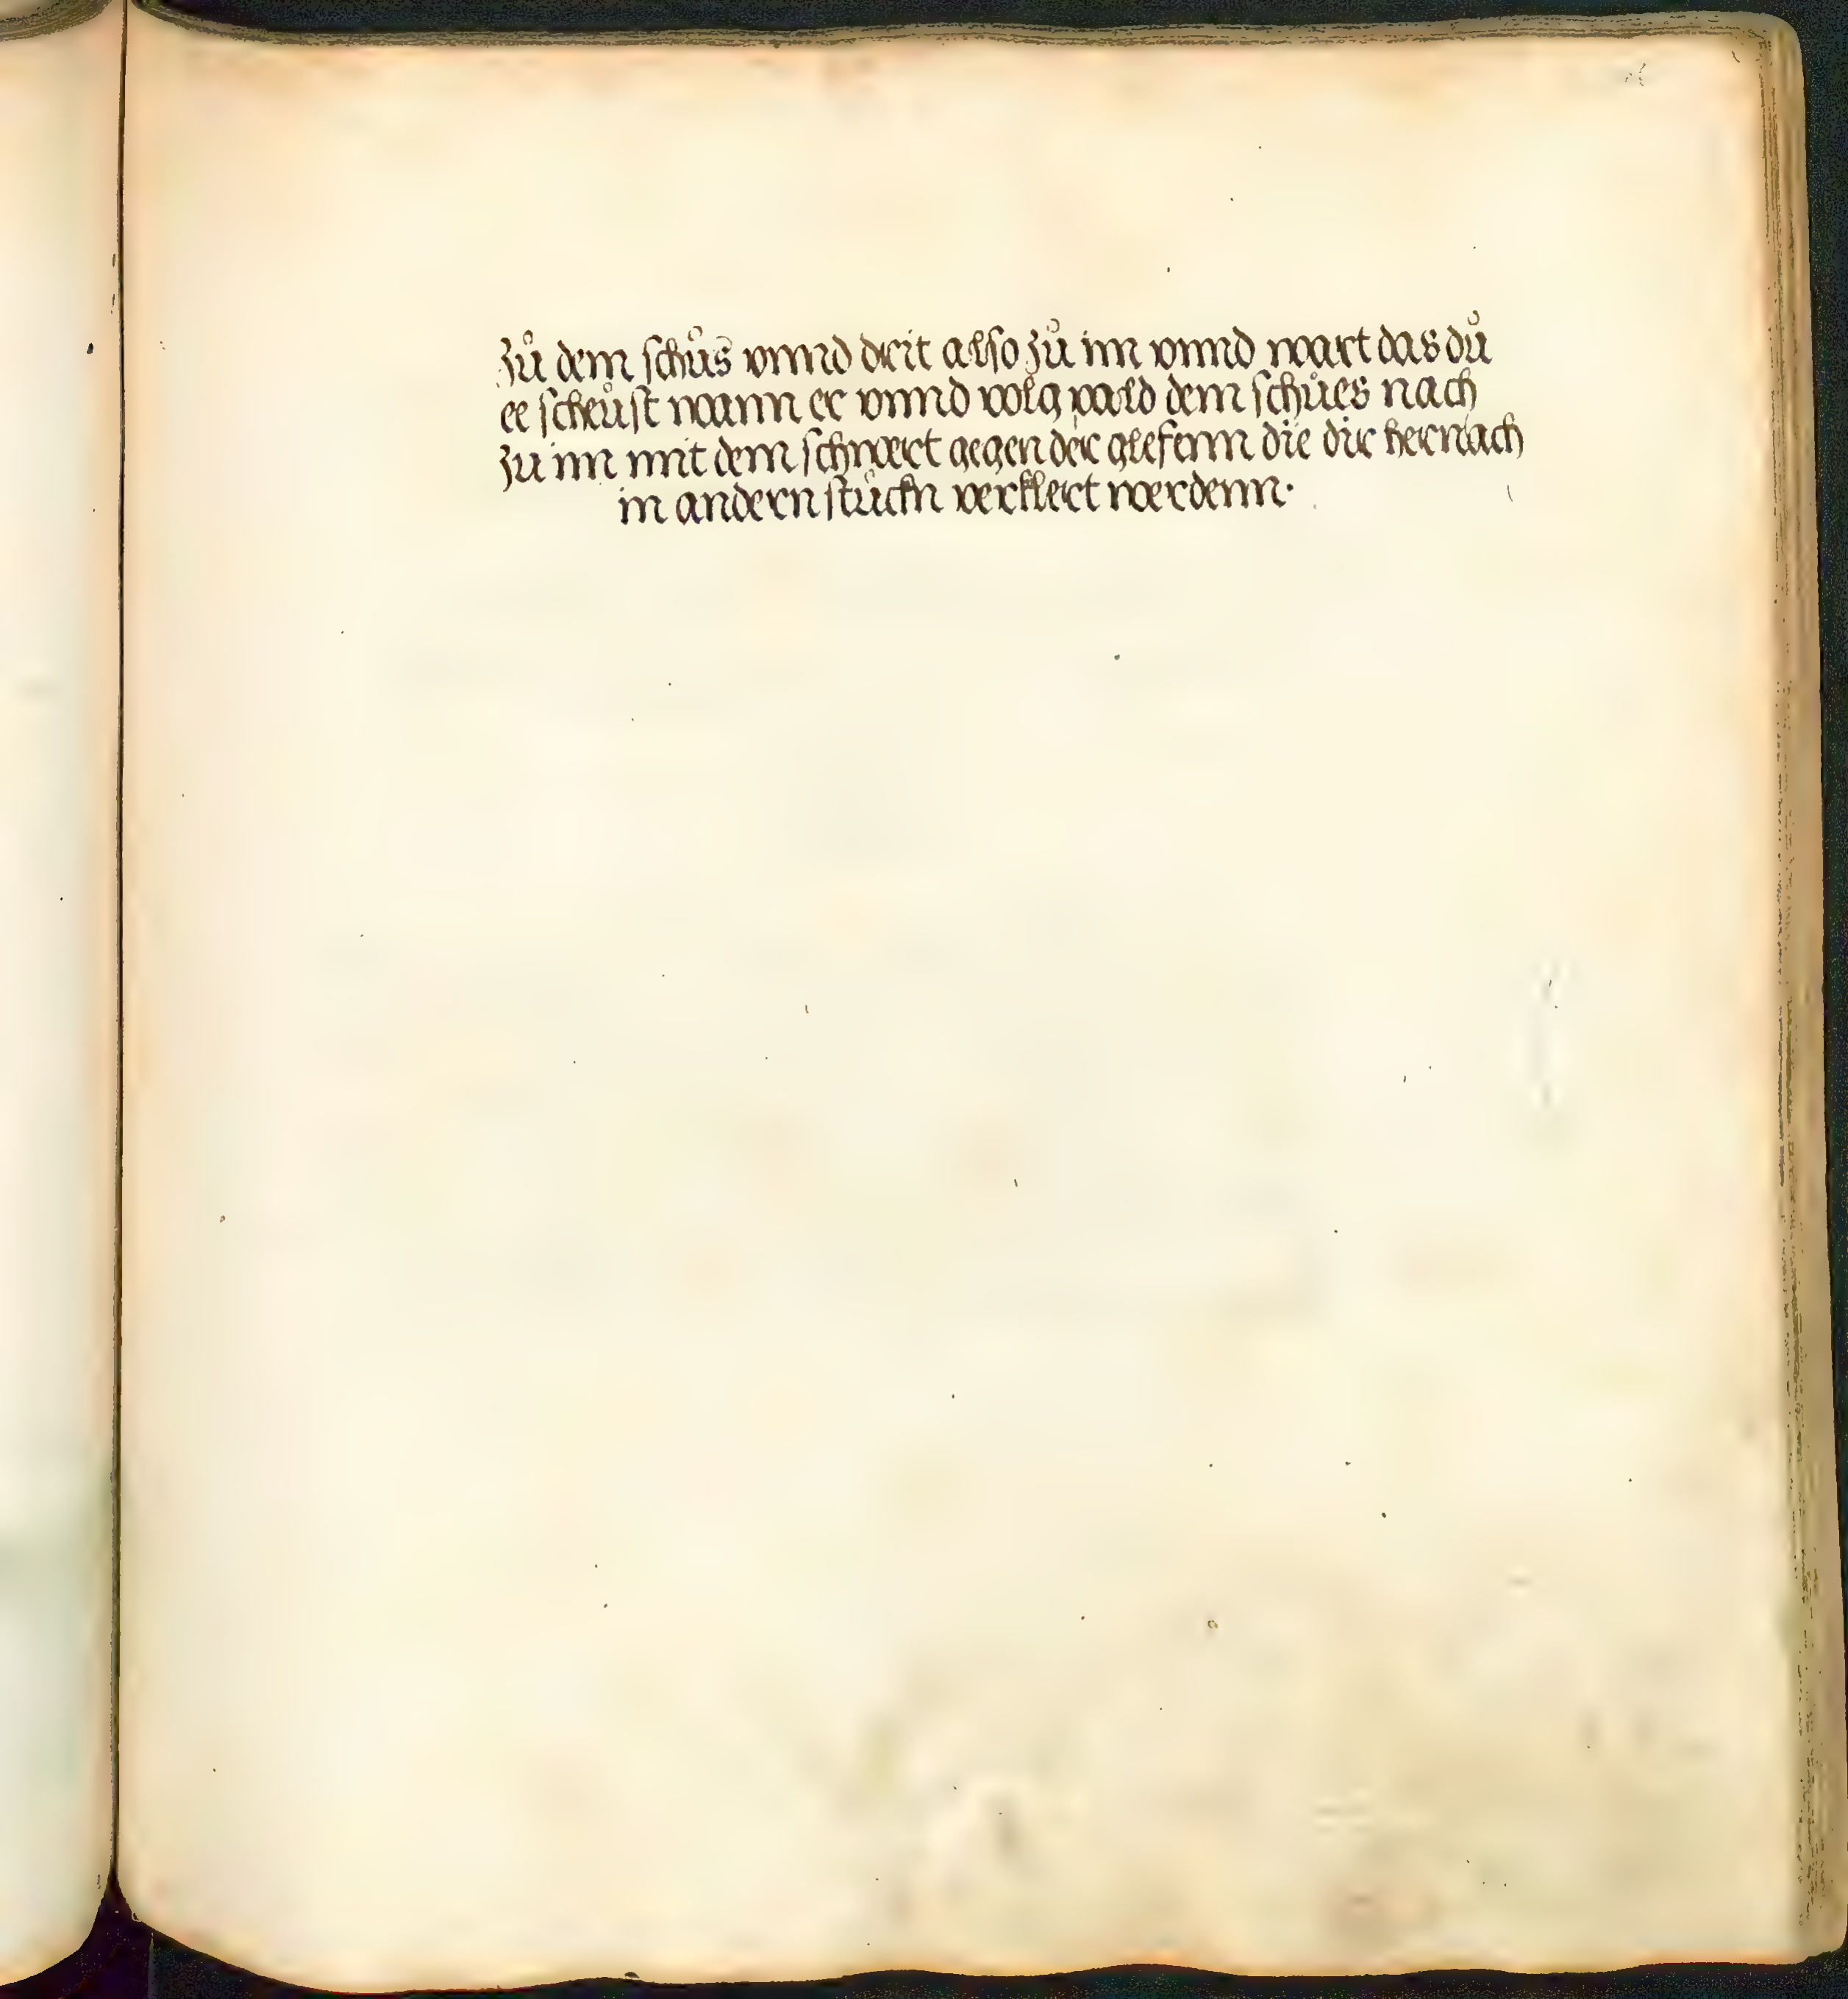 zů dem schůs vnnd drit also zů im vnnd wart das dů
ee scheůst wann er vnnd volg pald dem schůes nach
zu im mit dem schwert gegen der glefenn die dir hernach
in andern stůckn verklert werdenn·